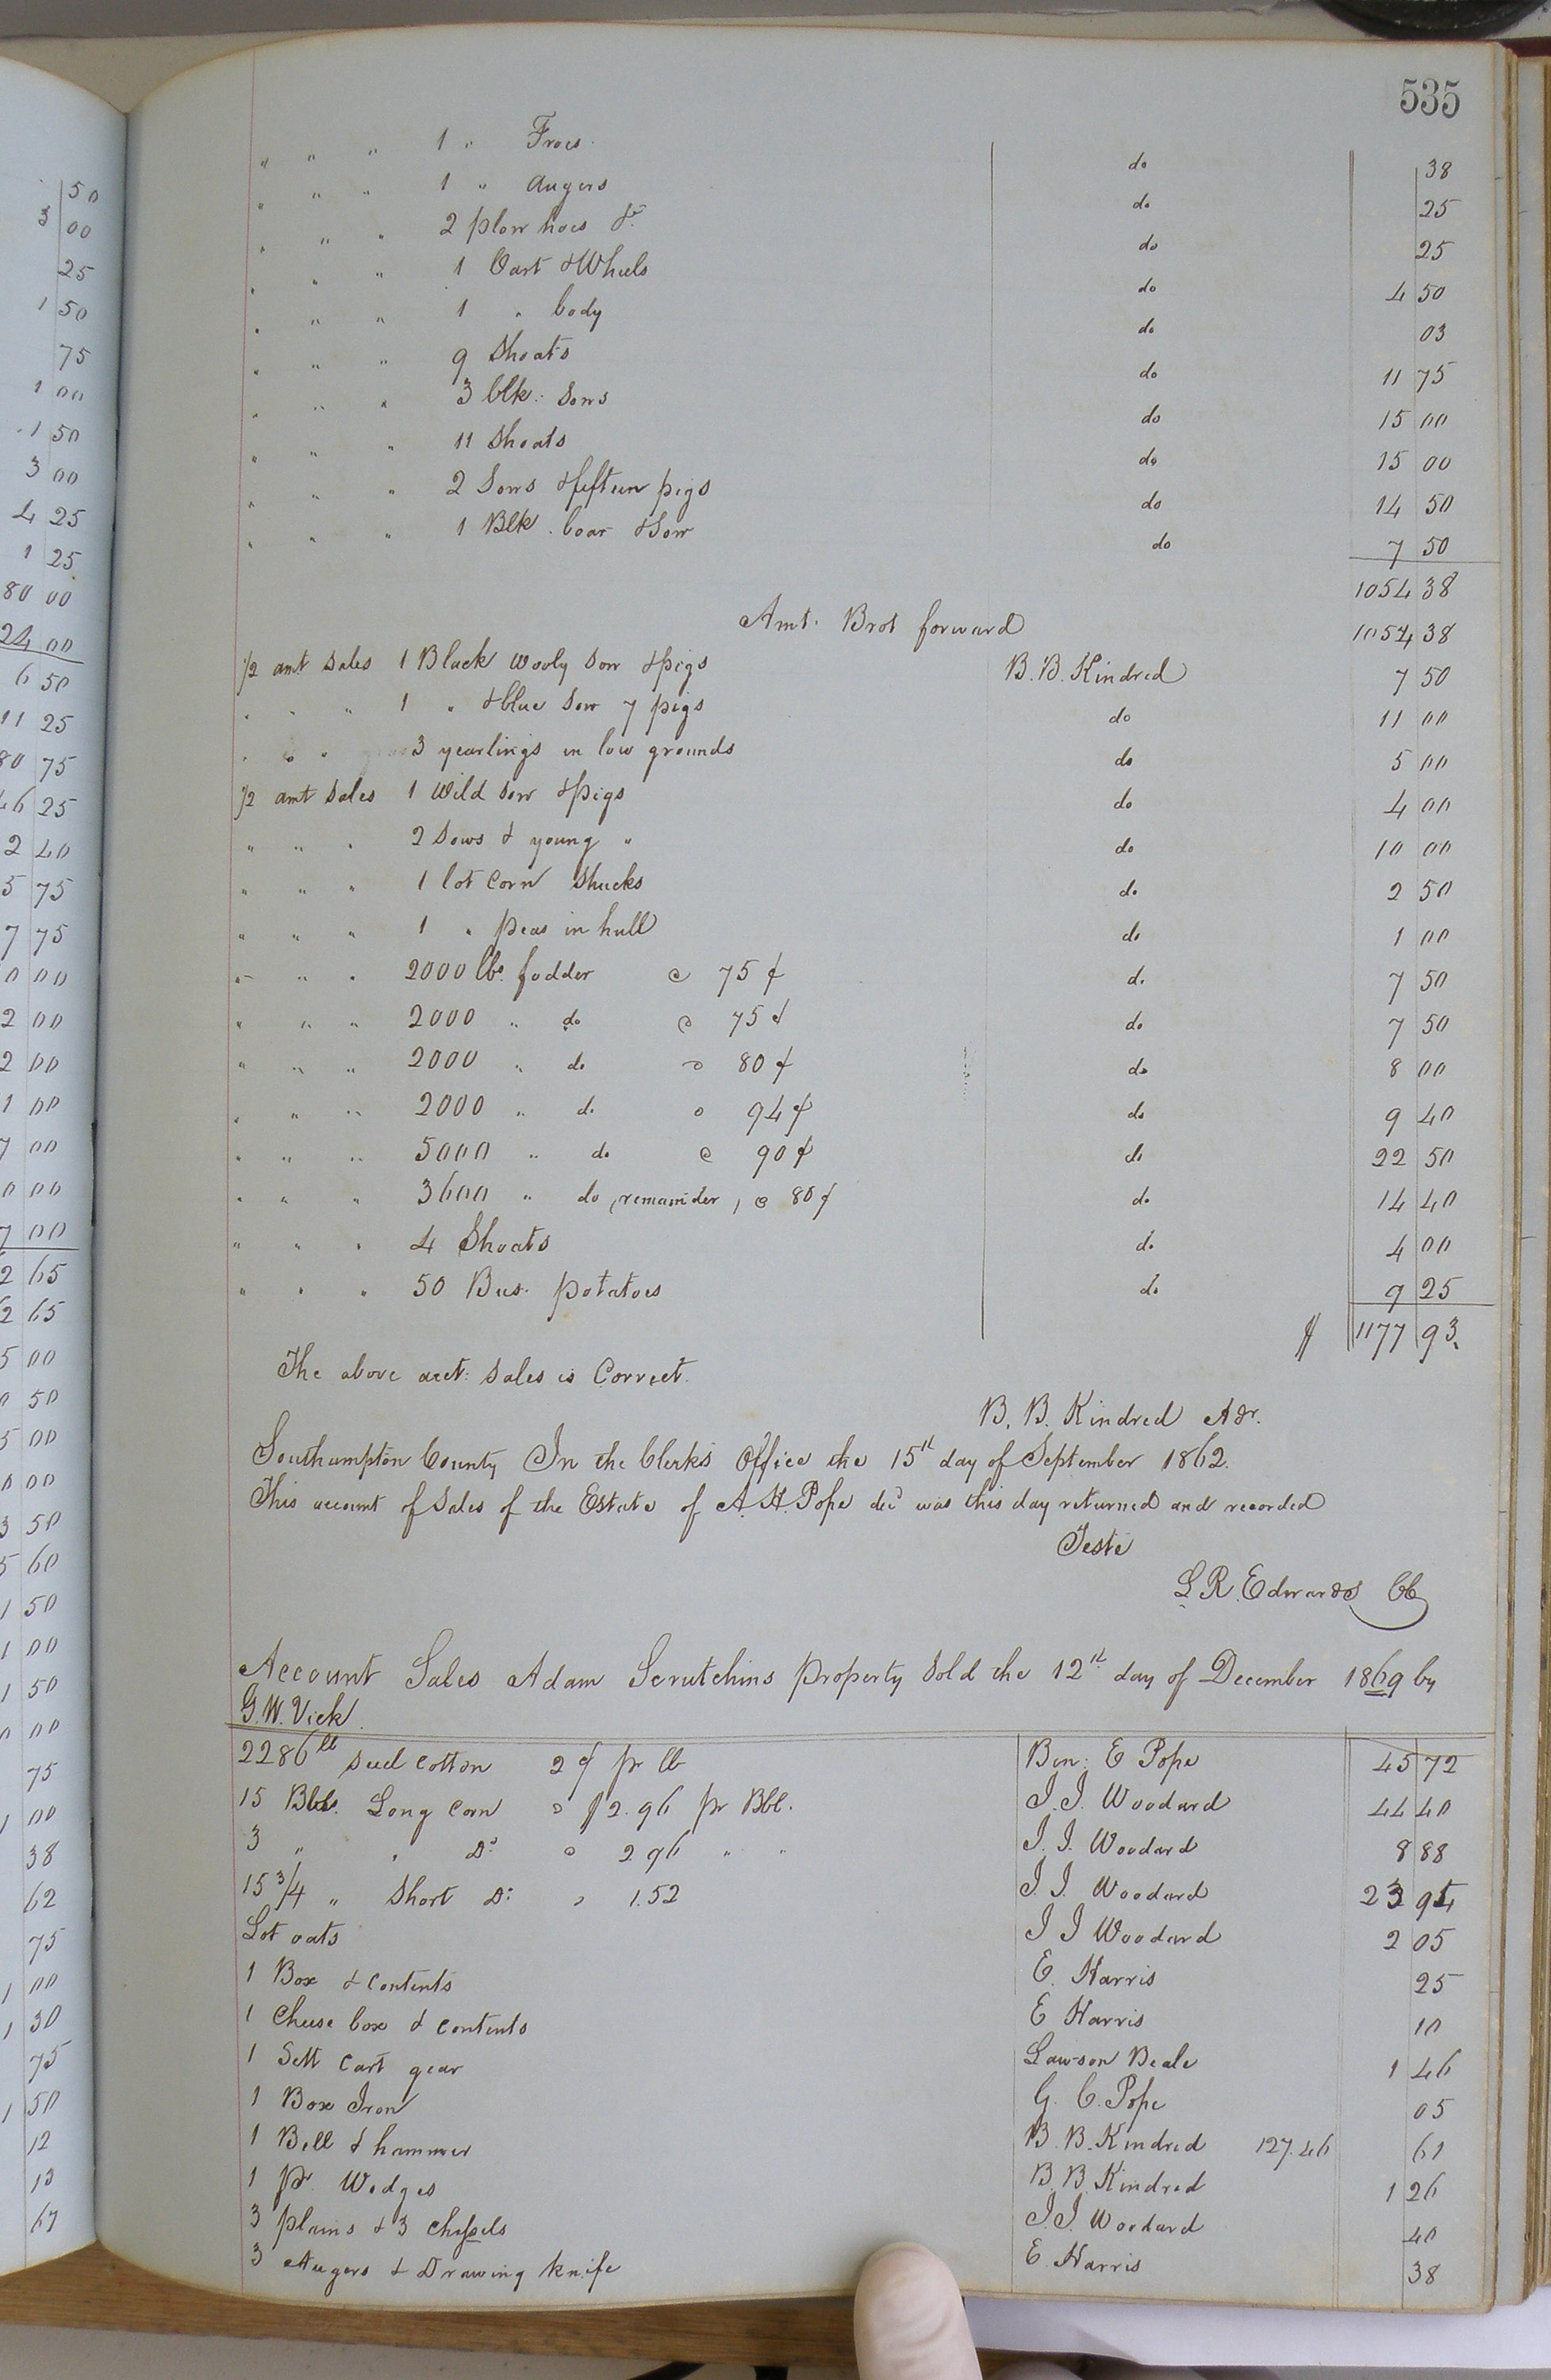 535
" " " 1 " Froes. do 38
" " " 1 " Augers do 25
" " " 2 plow hoes &c do 25
" " " 1 Cart & Wheels do 4 50
" " " 1 " body do 03
" " " 9 Shoats do 11 75
" " " 3 blk: Sows do 15 00
" " " 11 Shoats do 15 00
" " " 2 Sows & fifteen pigs do 14 50
" " " 1 Blk. boar & Sow do 7 50
1054 38
Amt. Brot forward 1054 38
1/2 amt Sales 1 Black wooly Sow & pigs B. B. Kindred 7 50
" " " 1 " & blue Sow 7 pigs do 11 00
" " " 3 yearlings in low grounds do 5 00
1/2 amt Sales 1 Wild Sow & pigs do 4 00
" " " 2 Sows & young " do 10 00
" " " 1 lot Corn Shucks do 2 50
" " " 1 " peas in hull do 1 00
" " " 2000 lbs. fodder @ 75 ¢ do 7 50
" " " 2000 " do @ 75 ¢ do 7 50
" " " 2000 " do @ 80 ¢ do 8 00
" " " 2000 " do @ 94 ¢ do 9 40
" " " 5000 " do @ 90 ¢ do 22 50
" " " 3600 " do (remainder) @ 80 ¢ do 14 40
" " " 4 Shoats do 4 00
" " " 50 Bus. potatoes do 9 25
$ 1177 93.
The above acct: Sales is Correct.
B. B. Kindred Adr.
Southampton County In the Clerks Office the 15th day of September 1862.
This account of Sales of the Estate of A. H. Pope decd was this day returned and recorded
Teste
L. R. Edwards CC
Account Sales Adam Scrutchins property Sold the 12th day of December 1869 by
G. W. Vick.
2286 lb Seed Cotton 2 ¢ pr lb Ben: E Pope 45 72
15 Bbls. Long Corn @ $2.96 pr Bbl. J. J. Woodard 44 40
3 " " Do @ 2 96 " " J. J. Woodard 8 88
15 3/4 " Short Do: @ 1.52 J. J. Woodard 23 94
Lot oats J J Woodard 2 05
1 Box & Contents E. Harris 25
1 Cheese box & contents E Harris 10
1 Sett Cart gear Lawson Beale 1 46
1 Box Iron G. C. Pope 05
1 Bell & hammer B. B. Kindred 127.46 61
1 pr. Wedges B. B. Kindred 1 26
3 plains & 3 Chissels J. J. Woodard 40
3 Augers & Drawing knife E. Harris 38
50
3 00
25
1 50
75
1 00
1 50
3 00
4 25
1 25
80 00
24 00
6 50
11 25
80 75
46 25
2 40
5 75
7 75
0 00
2 00
2 00
1 00
7 00
0 00
7 00
2 65
2 65
5 00
0 50
5 00
0 00
3 50
5 60
1 50
1 00
1 50
0 00
75
1 00
38
62
75
1 00
1 30
75
1 50
12
13
67